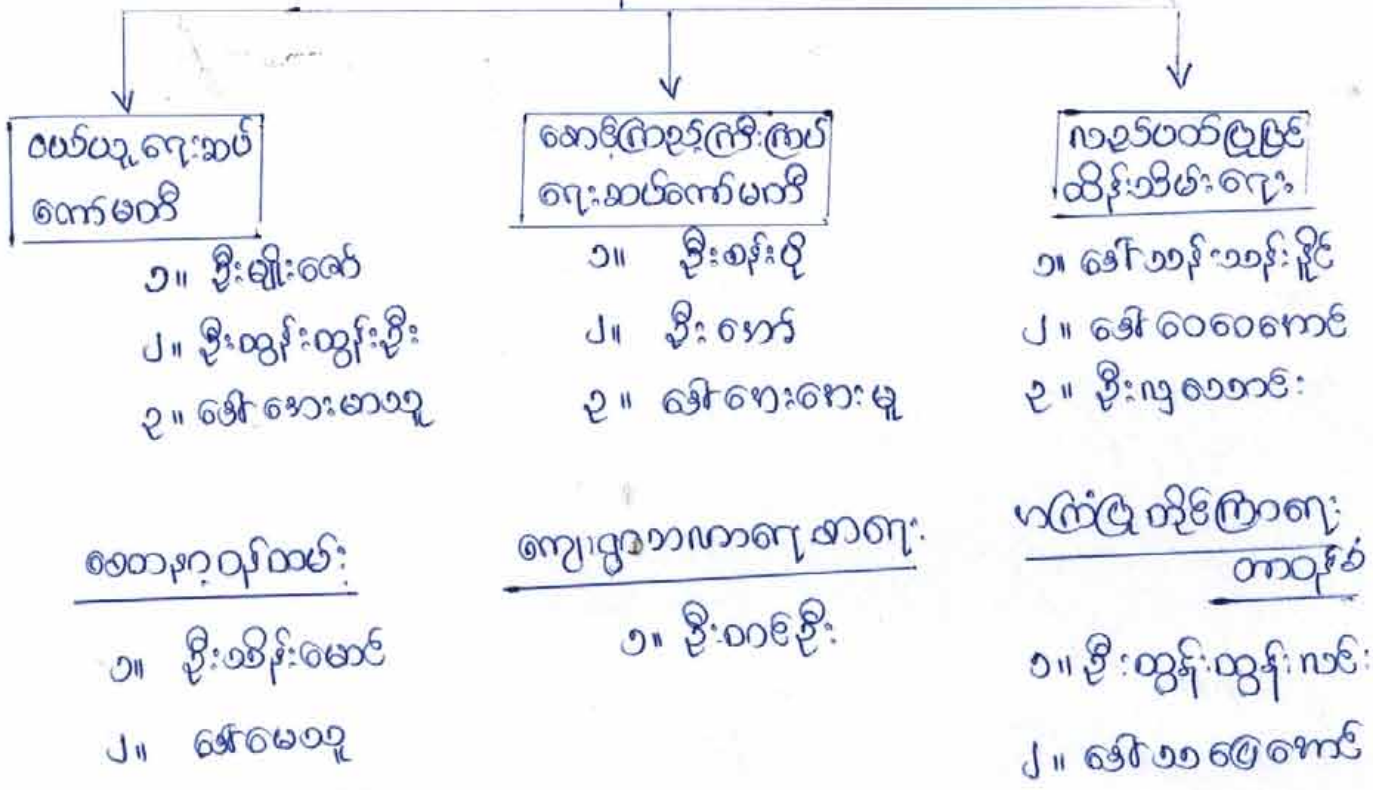 ဝယ်ယူရေးဆပ်
ကော်မတီ
၁။ ဦးမျိုးဇော်
၂။ ဦးထွန်းထွန်းဦး
၃။ ဒေါ်အေးမာသူ
စောင့်ကြည့်ကြီးကြပ်
ရေးဆပ်ကော်မတီ
၁။ ဦးစန်းဖို
၂။ ဦးအော်
၃။ ဒေါ်အေးအေးမူ
လည်ပတ်ပြုပြင်
ထိန်းသိမ်းရေး
၁။ ဒေါ်သန်းသန်းနိုင်
၂။ ဒေါ်ဝေဝေအောင်
၃။ ဦးလှသောင်း
စေတနာ့ဝန်ထမ်း
၁။ ဦးသိန်းမောင်
၂။ ဒေါ်မေသူ
ကျေးရွာဘဏ္ဍာရေးစာရေး
၁။ ဦးတင်ဦး
အကြံပြုတိုင်ကြားရေး
တာဝန်ခံ
၁။ ဦးထွန်းထွန်းလင်း
၂။ ဒေါ်သာပြေအောင်